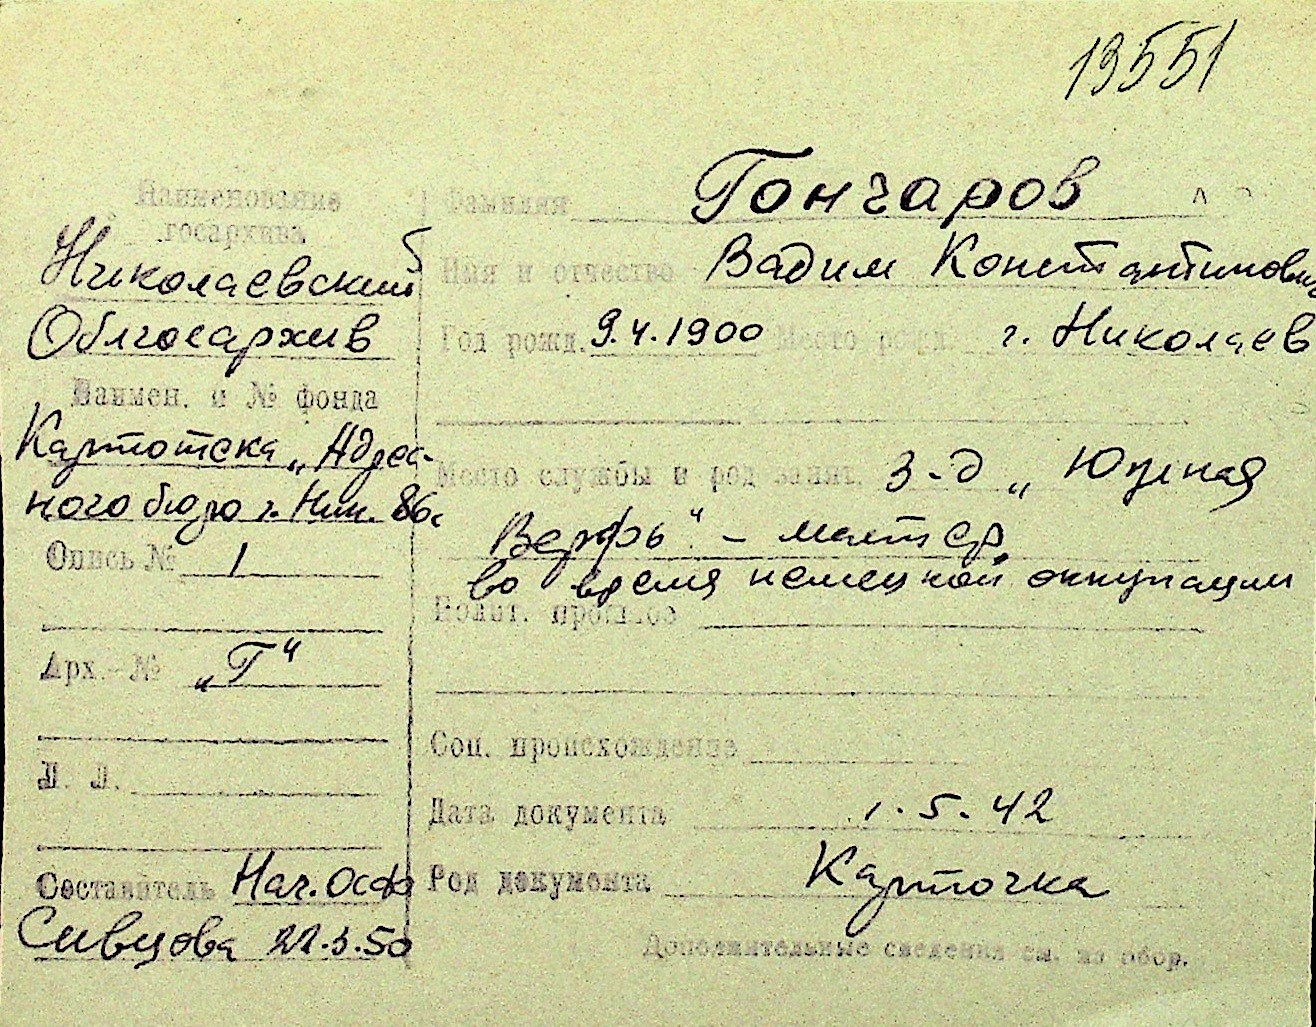 13551
Наименование
госархива
Николаевский
Облгосархив
Наимен. и № фонда
Картотека „Адрес-
ного бюро г. Ник.
Опись № 1
Арх.-№ „Г"
Л. Л.
Составитель Нач. ОСФ
Сивцова 22.3.50
Фамилия Гончаров
Имя и отчество Вадим Константинович
Год рожд. 9.4.1900 Место рожд. г. Николаев
Место службы и род занят. З-д „Южная
Верфь" - мастер,
во время немецкой оккупации
Полит. прошлое
Соц. происхождение
Дата документа 1.5.42
Род документа Карточка
Дополнительные сведения см. на обор.